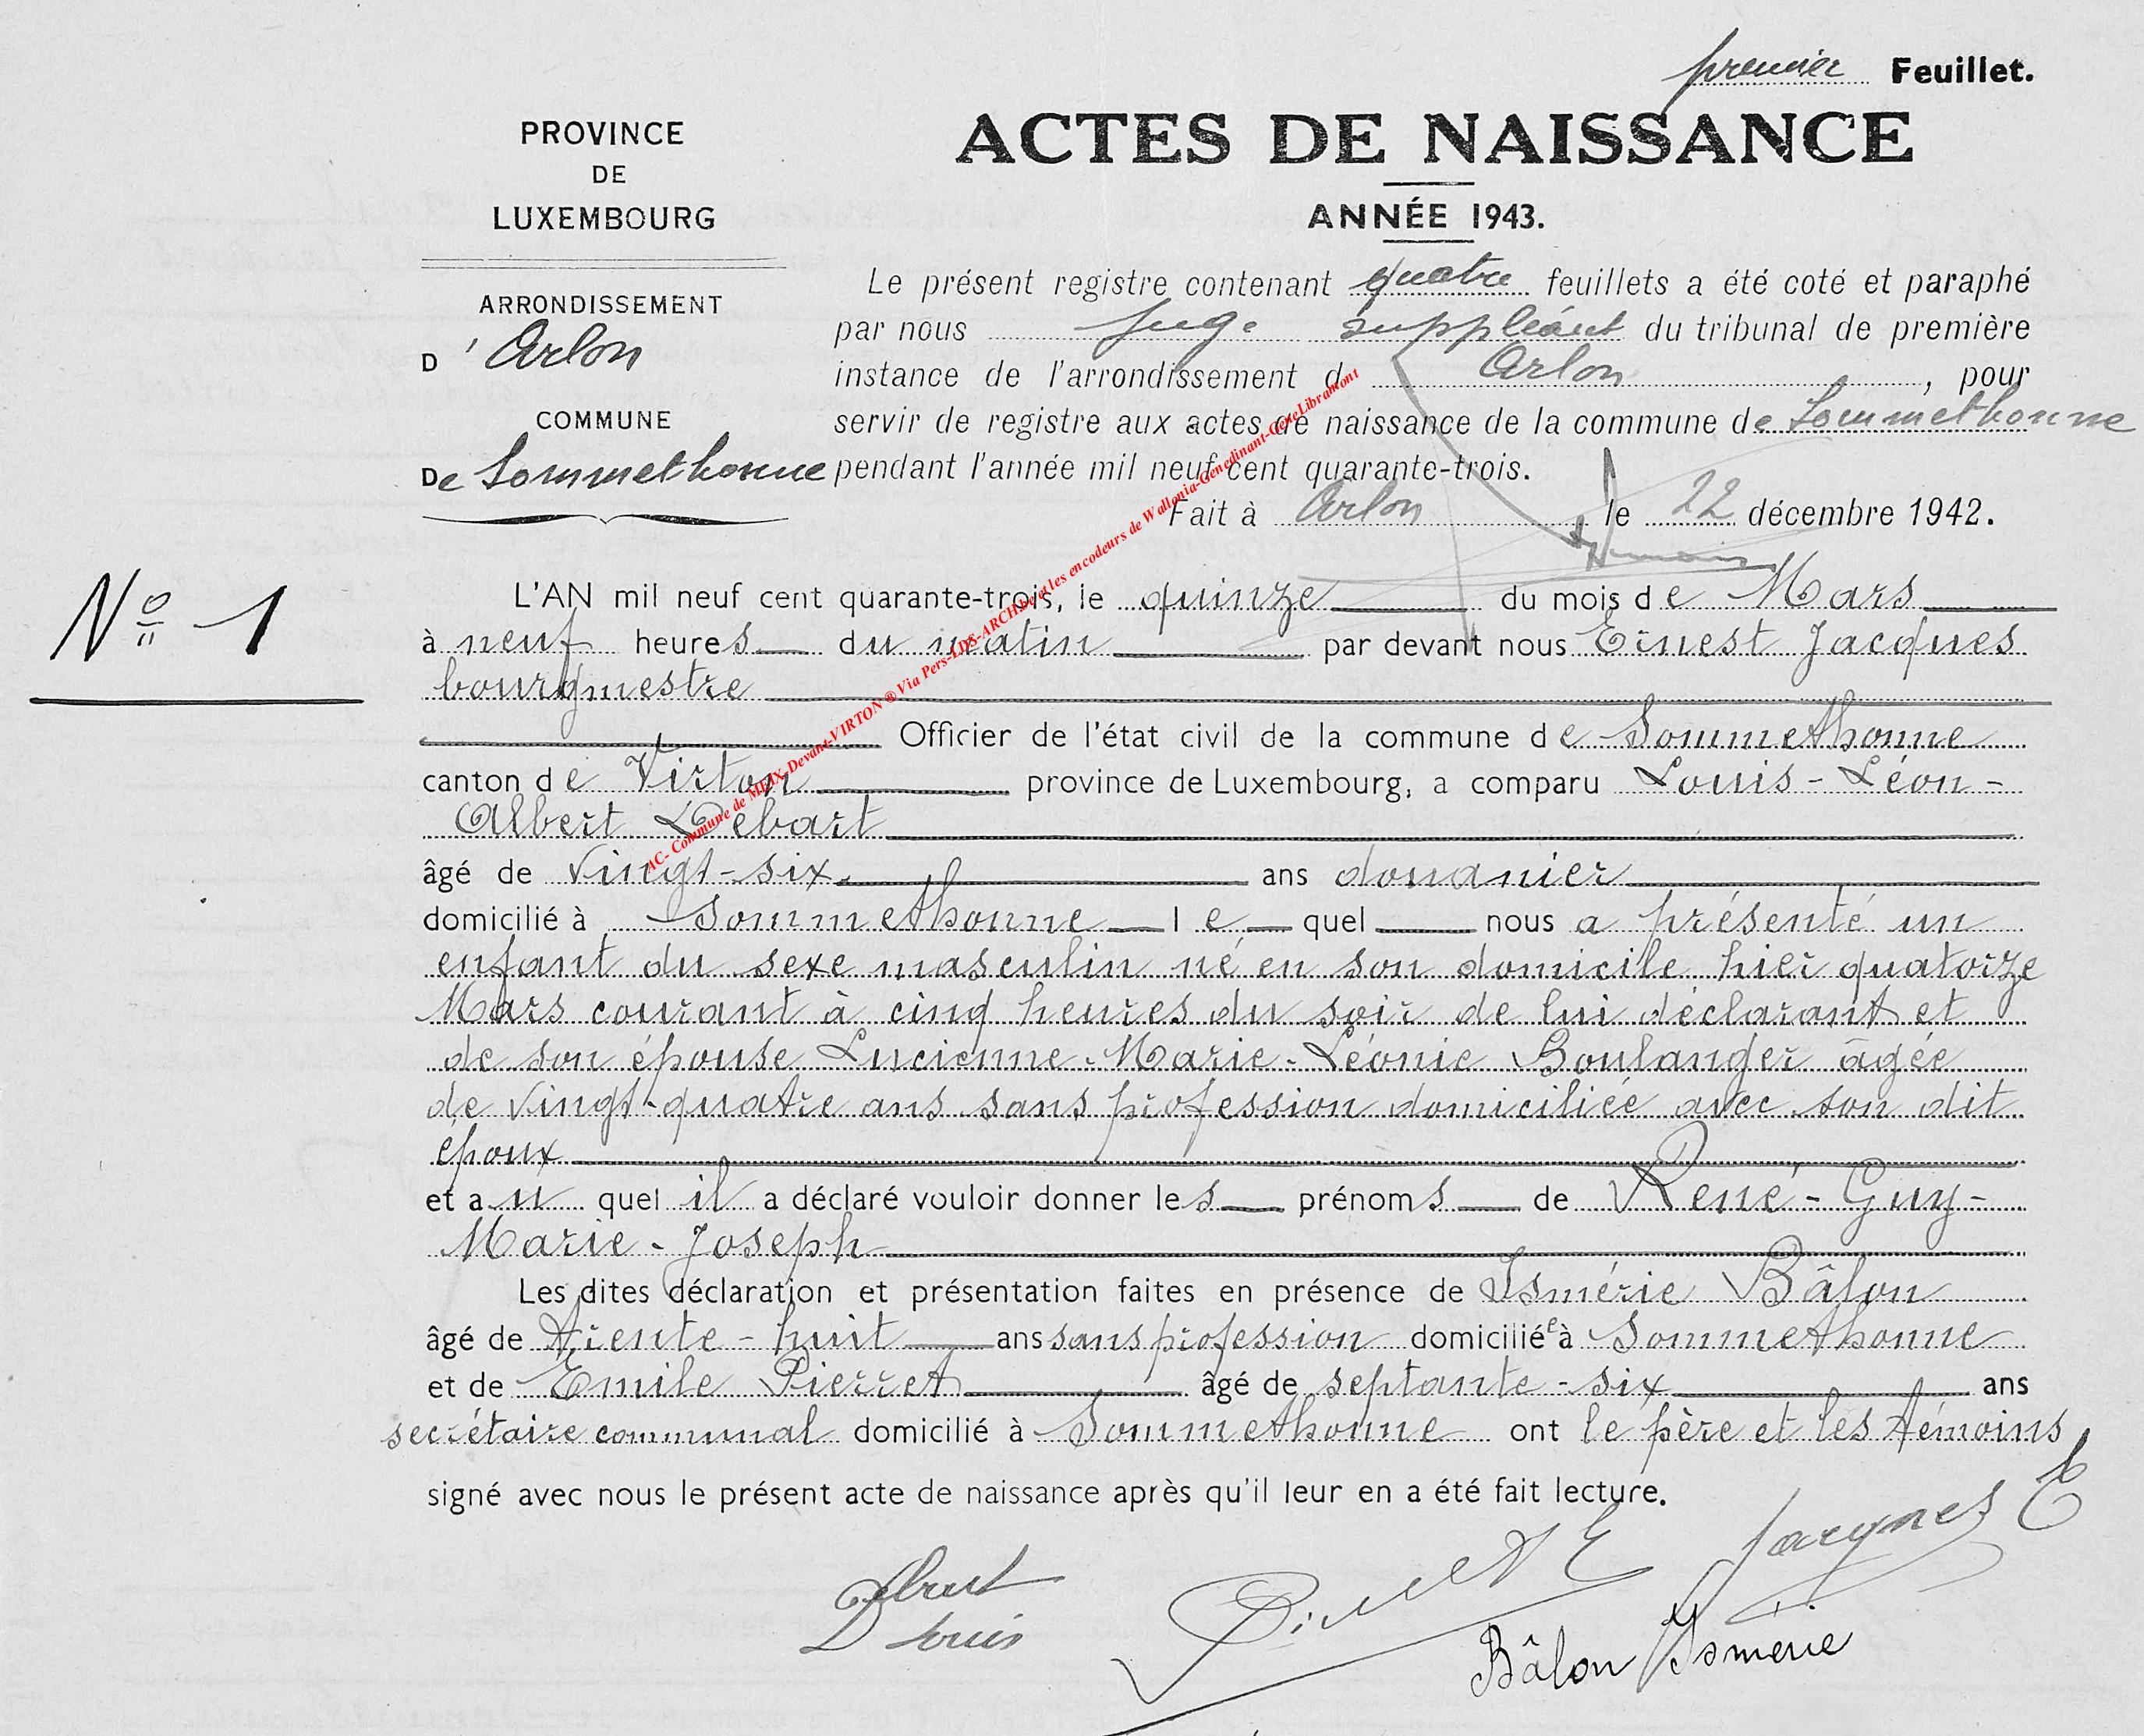 premier Feuillet.
PROVINCE
DE
LUXEMBOURG
ARRONDISSEMENT
D'Arlon
COMMUNE
De Sommethonne
ACTES DE NAISSANCE
ANNÉE 1943.
Le présent registre contenant quatre feuillets a été coté et paraphé
par nous juge suppléant du tribunal de première
instance de l'arrondissement d Arlon, pour
servir de registre aux actes de naissance de la commune de Sommethonne
pendant l'année mil neuf cent quarante-trois.
Fait à Arlon le 22 décembre 1942.
Nº 1
L'AN mil neuf cent quarante-trois, le quinze du mois de Mars
à neuf heures du matin par devant nous Ernest Jacques
bourgmestre
Officier de l'état civil de la commune de Sommethonne
canton de Virton province de Luxembourg, a comparu Louis-Léon-
Albert Debart
âgé de vingt-six ans douanier
domicilié à Sommethonne lequel nous a présenté un
enfant du sexe masculin né en son domicile hier quatorze
Mars courant à cinq heures du soir de lui déclarant et
de son épouse Lucienne-Marie-Léonie Boulanger âgée
de vingt-quatre ans sans profession domiciliée avec son dit
époux
et au quel il a déclaré vouloir donner les prénoms de René-Guy-
Marie-Joseph
Les dites déclaration et présentation faites en présence de Ismérie Bâlon
âgé de trente-huit ans sans profession domiciliée à Sommethonne
et de Emile Pierret âgé de septante-six ans
secrétaire communal domicilié à Sommethonne ont le père et les témoins
signé avec nous le présent acte de naissance après qu'il leur en a été fait lecture.
Jacques E
Debart
Louis
Bâlon Ismérie
AC- Commune de MEIX-Devant-VIRTON ® Via Pers-LDS-ARCH.be et les encodeurs de Wallonia-Genedinant-GeneLibramont